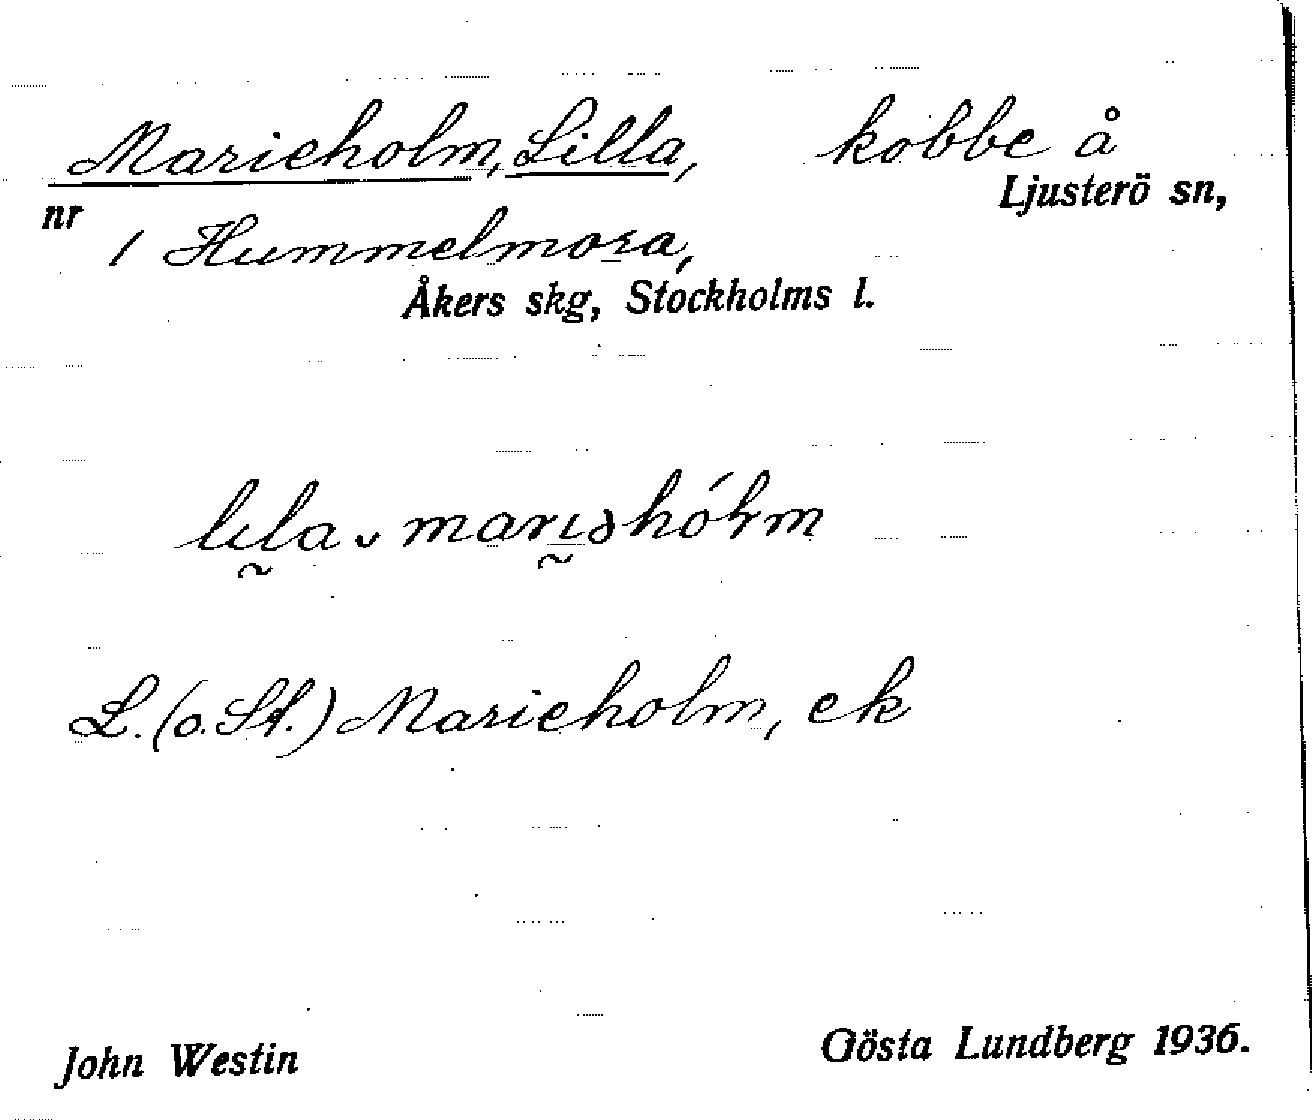 Marieholm, Lilla, kobbe å
Ljusterö sn,
nr 1 Hummelmora,
Åkers skg, Stockholms l.
lɪla ᵥ marɪəhólm
L. (o. St.) Marieholm, ek
John Westin Gösta Lundberg 1936.